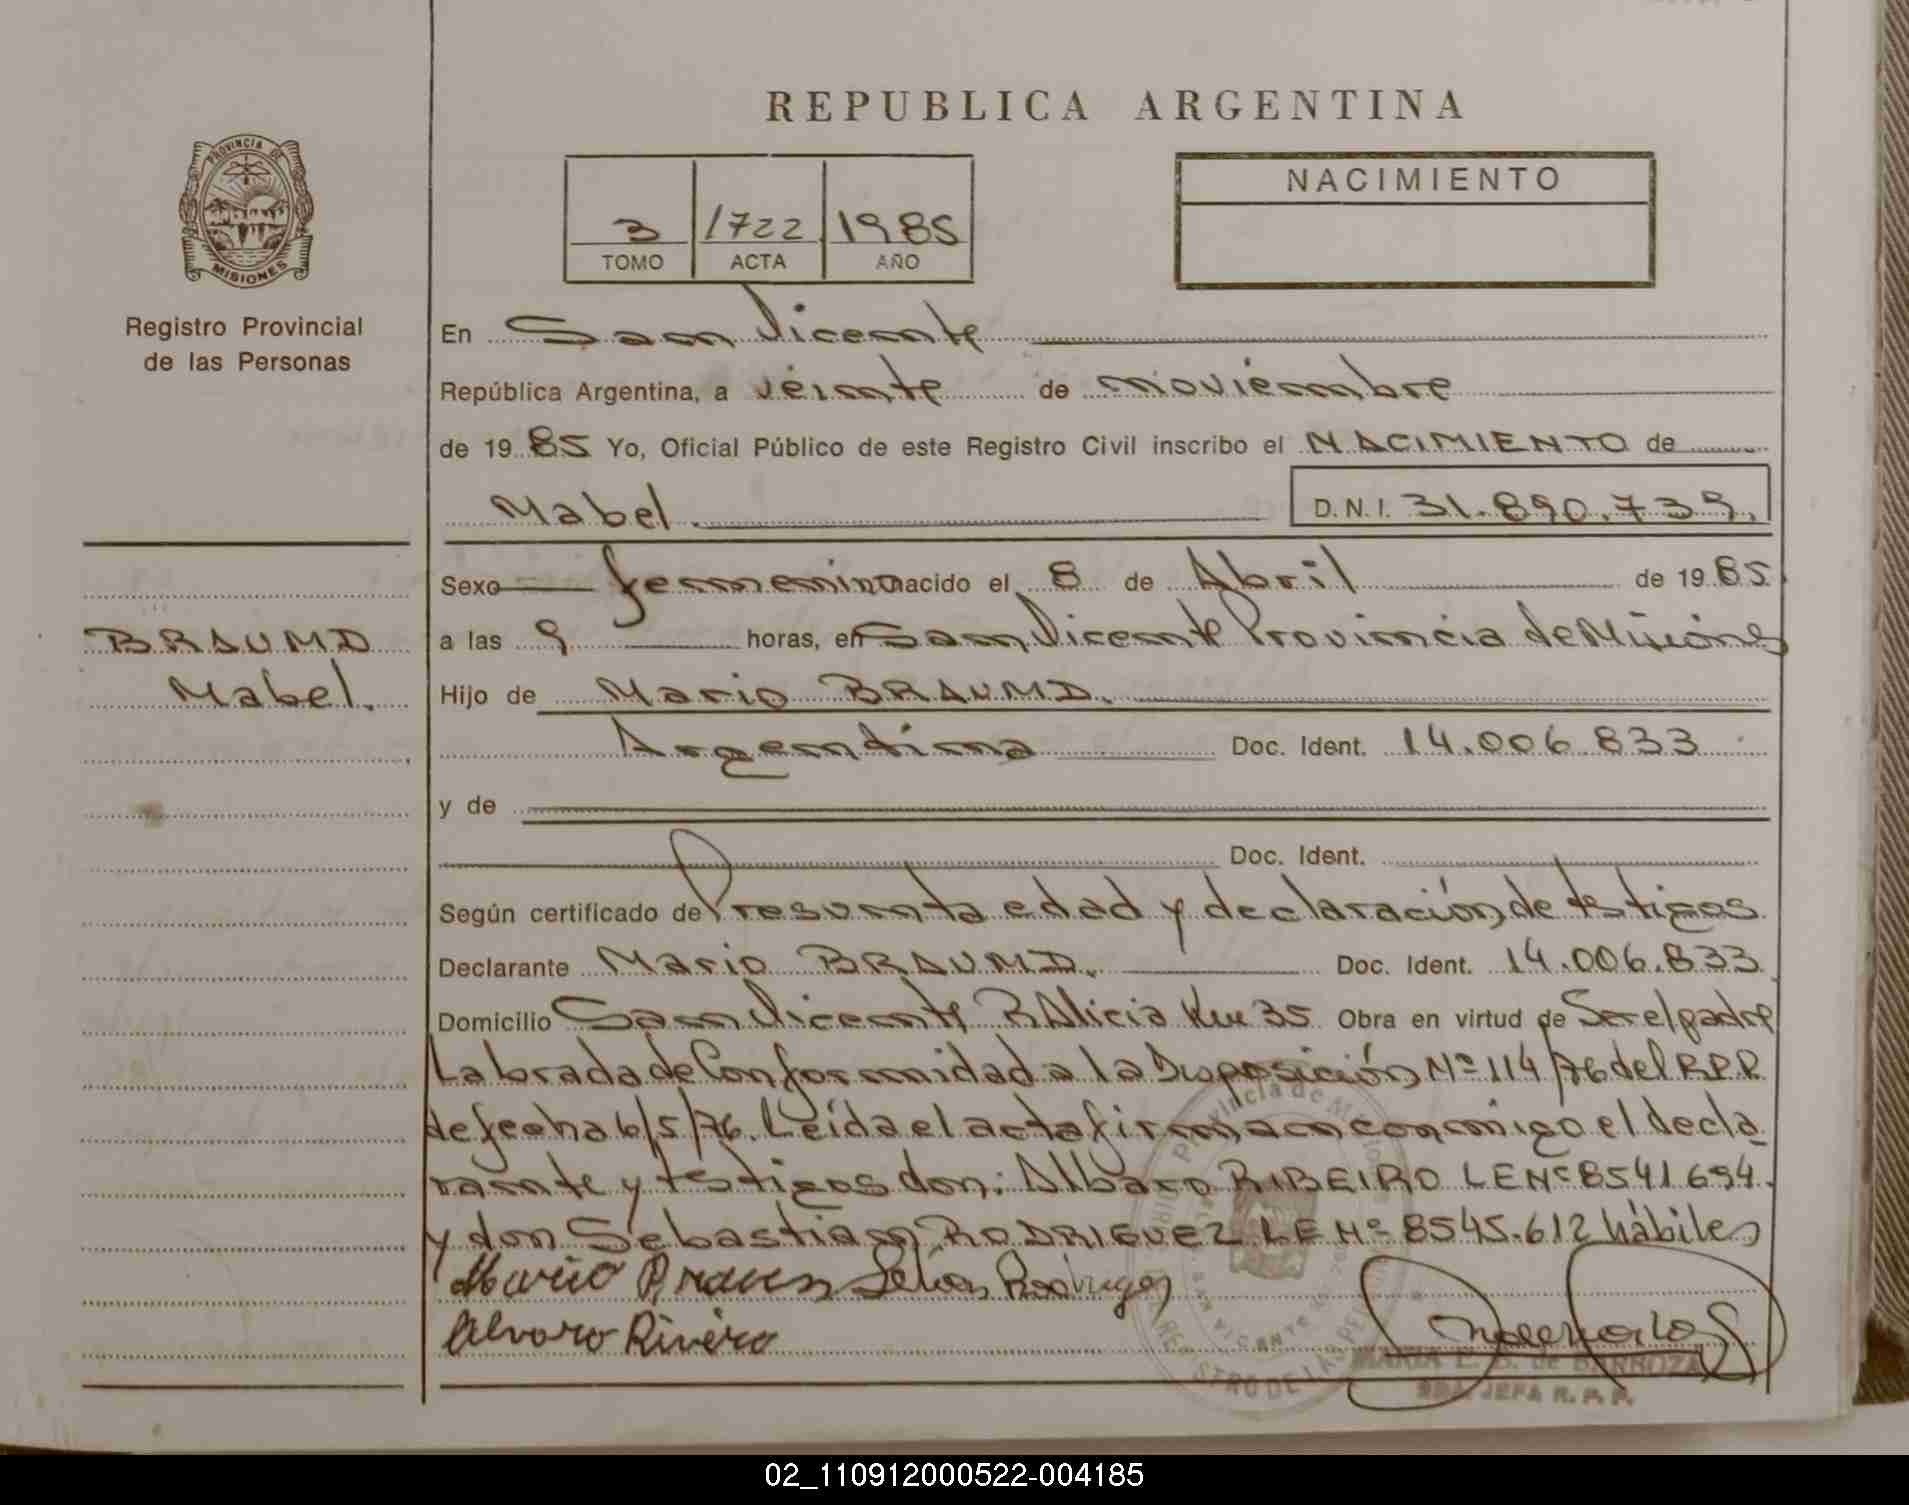 REPUBLICA ARGENTINA
PROVINCIA DE
MISIONES
Registro Provincial
de las Personas
3 1722 1985
TOMO ACTA AÑO
NACIMIENTO
En San Vicente
República Argentina, a veinte de noviembre
de 1985 Yo, Oficial Público de este Registro Civil inscribo el NACIMIENTO de
Mabel. D.N.I. 31.890.739.
Sexo femenino nacido el 8 de Abril de 1985
BRAUND
Mabel.
a las 9 horas, en San Vicente Provincia de Misiones
Hijo de Mario BRAUND.
Argentina Doc. Ident. 14.006.833
y de
Doc. Ident.
Según certificado de Presunta edad y declaración de testigos
Declarante Mario BRAUND. Doc. Ident. 14.006.833
Domicilio San Vicente R Alicia Km 35 Obra en virtud de Ser el padre
Labrada de Conformidad a la Disposición Nº 114/76 del R.P.P.
de fecha 6/5/76. Leída el acta firman conmigo el decla
rante y testigos don: Albaro RIBEIRO LE Nº 8541694.
y don Sebastian RODRIGUEZ LE Nº 8545.612 hábiles
Mario
Alvaro Rivero
MARIA E. B. de BARROZA
JEFA R. P. P.
02_110912000522-004185